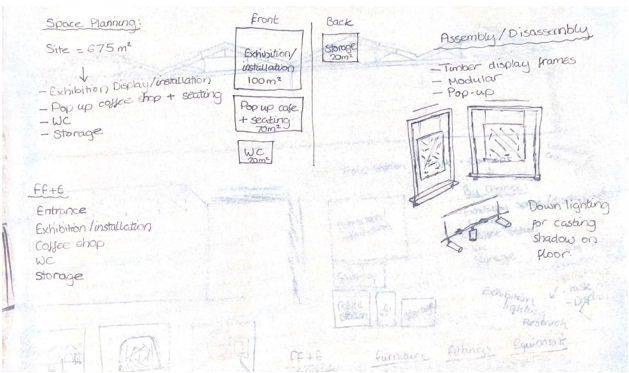 Space Planning:
Site = 675 m²
- Exhibition Display/installation
- Pop up coffee shop + seating
- WC
- Storage
Front
Exhibition/
installation
100m²
Pop up cafe
+ seating
70m²
WC
20m²
Back
Storage
20m²
Assembly/Disassembly
- Timber display frames
- Modular
- Pop-up
Down lighting
for casting
shadow on
floor.
FF+E
Entrance
Exhibition/installation
Coffee shop
WC
Storage
Storage
Exhibition
lighting
Research
FF+E
furniture
fittings
Equipment